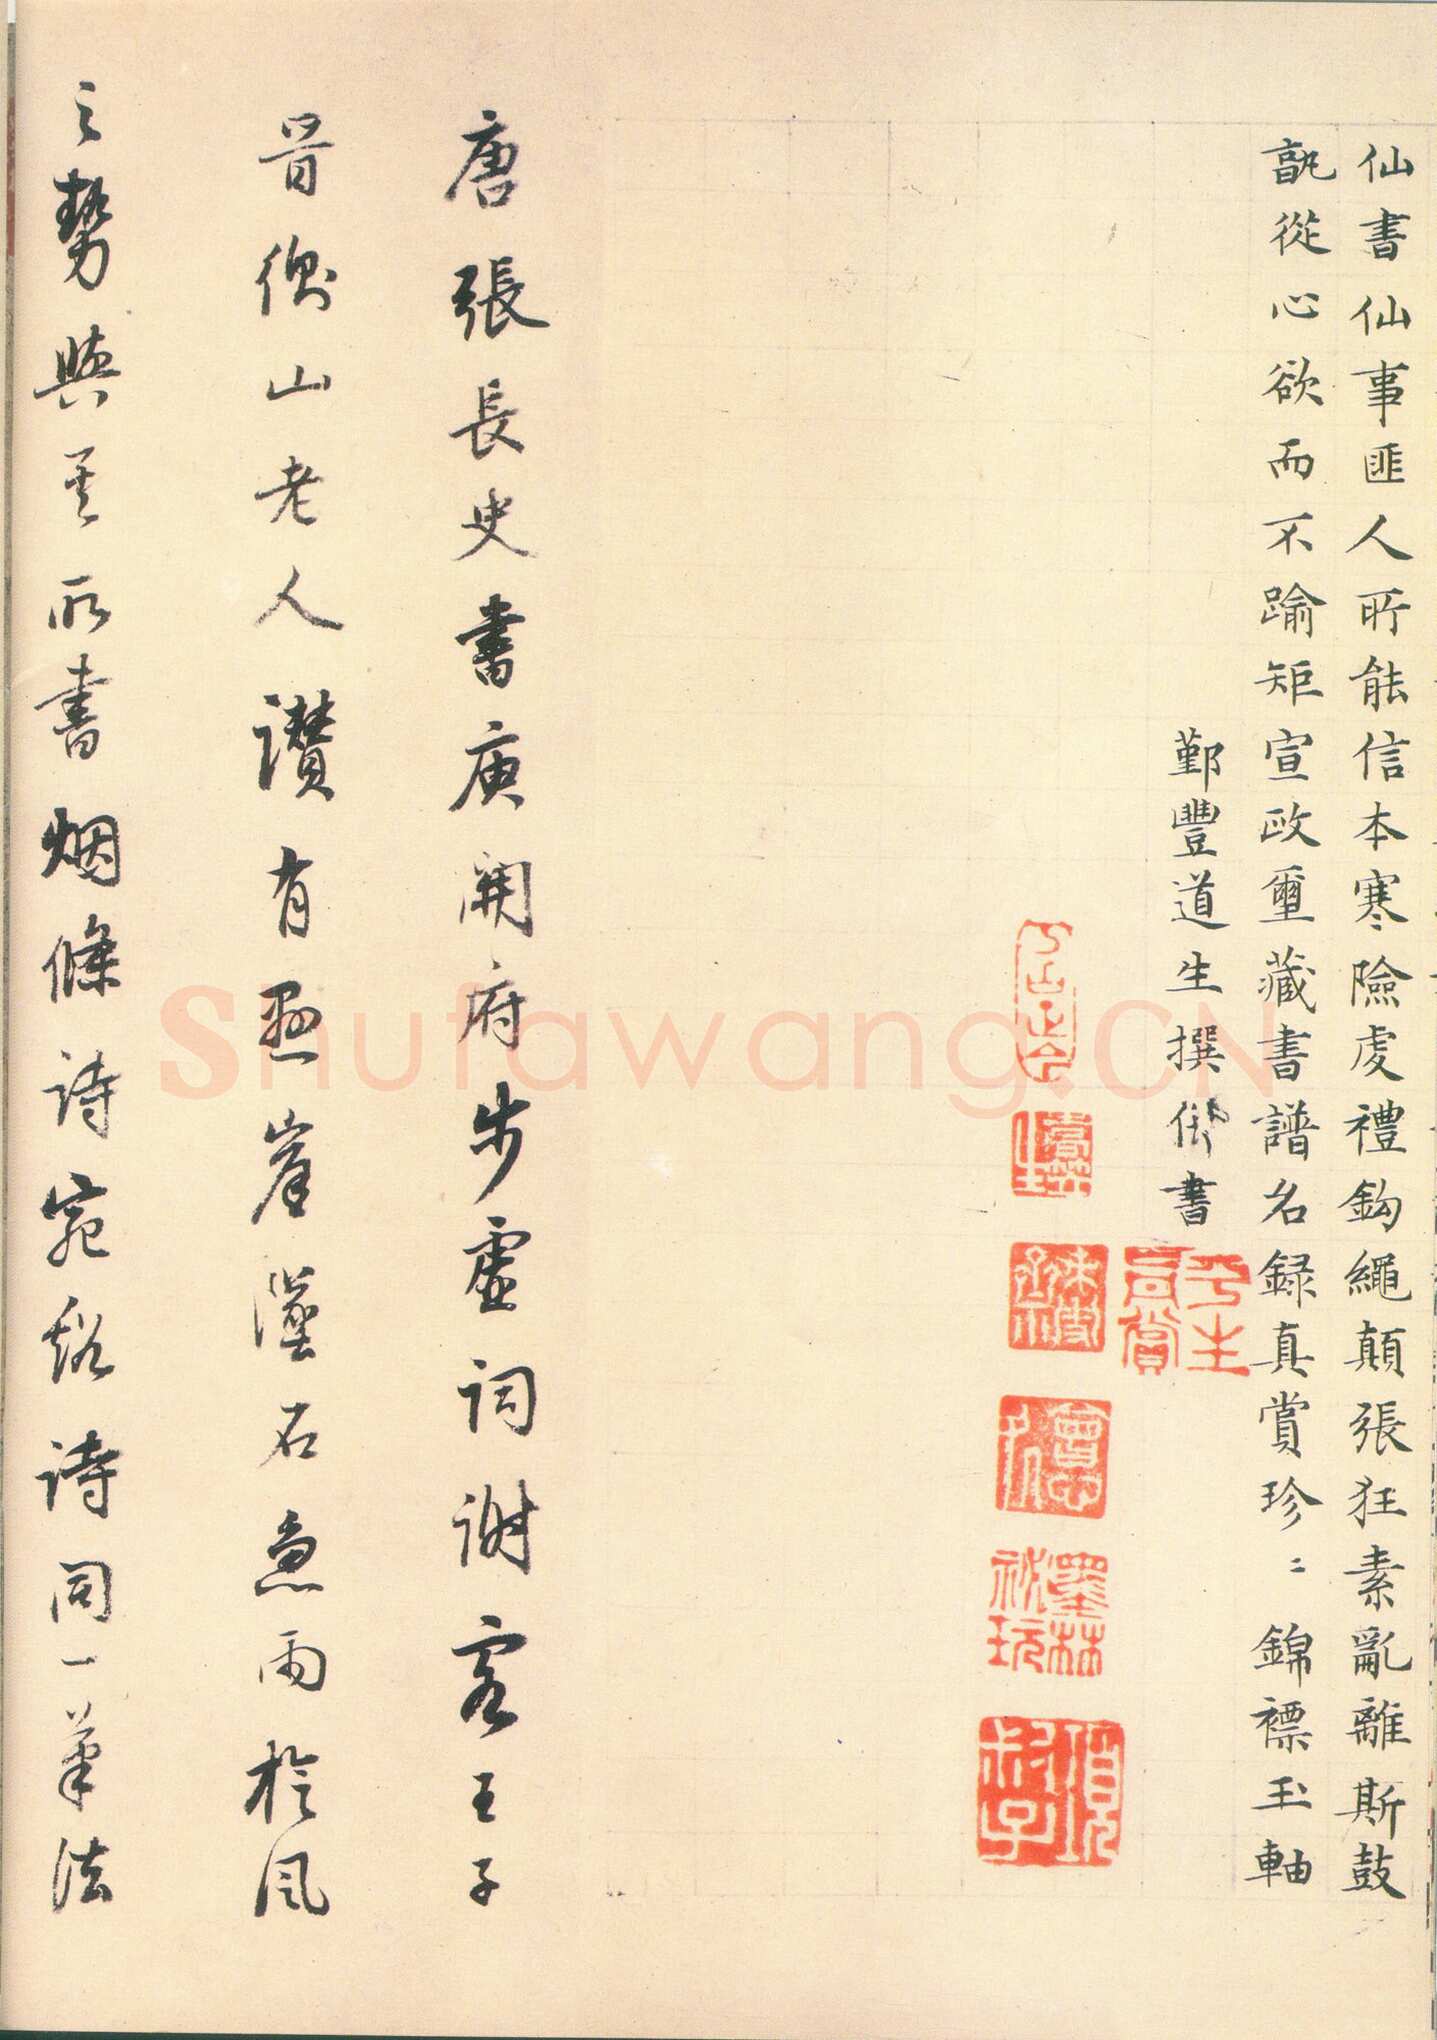 仙書仙事匪人所能信本寒險虔禮鈎繩顛張狂素亂離斯鼓
孰從心欲而不踰矩宣政璽藏書譜名録真賞珍〻錦褾玉軸
鄞豐道生撰併書
墨林祕玩
項叔子
唐張長史書庾開府步虛詞謝客王子
晉衡山老人讚有懸崖墜石急雨旋風
之勢與其所書烟條詩宛谿詩同一筆法
Shufawang.CN